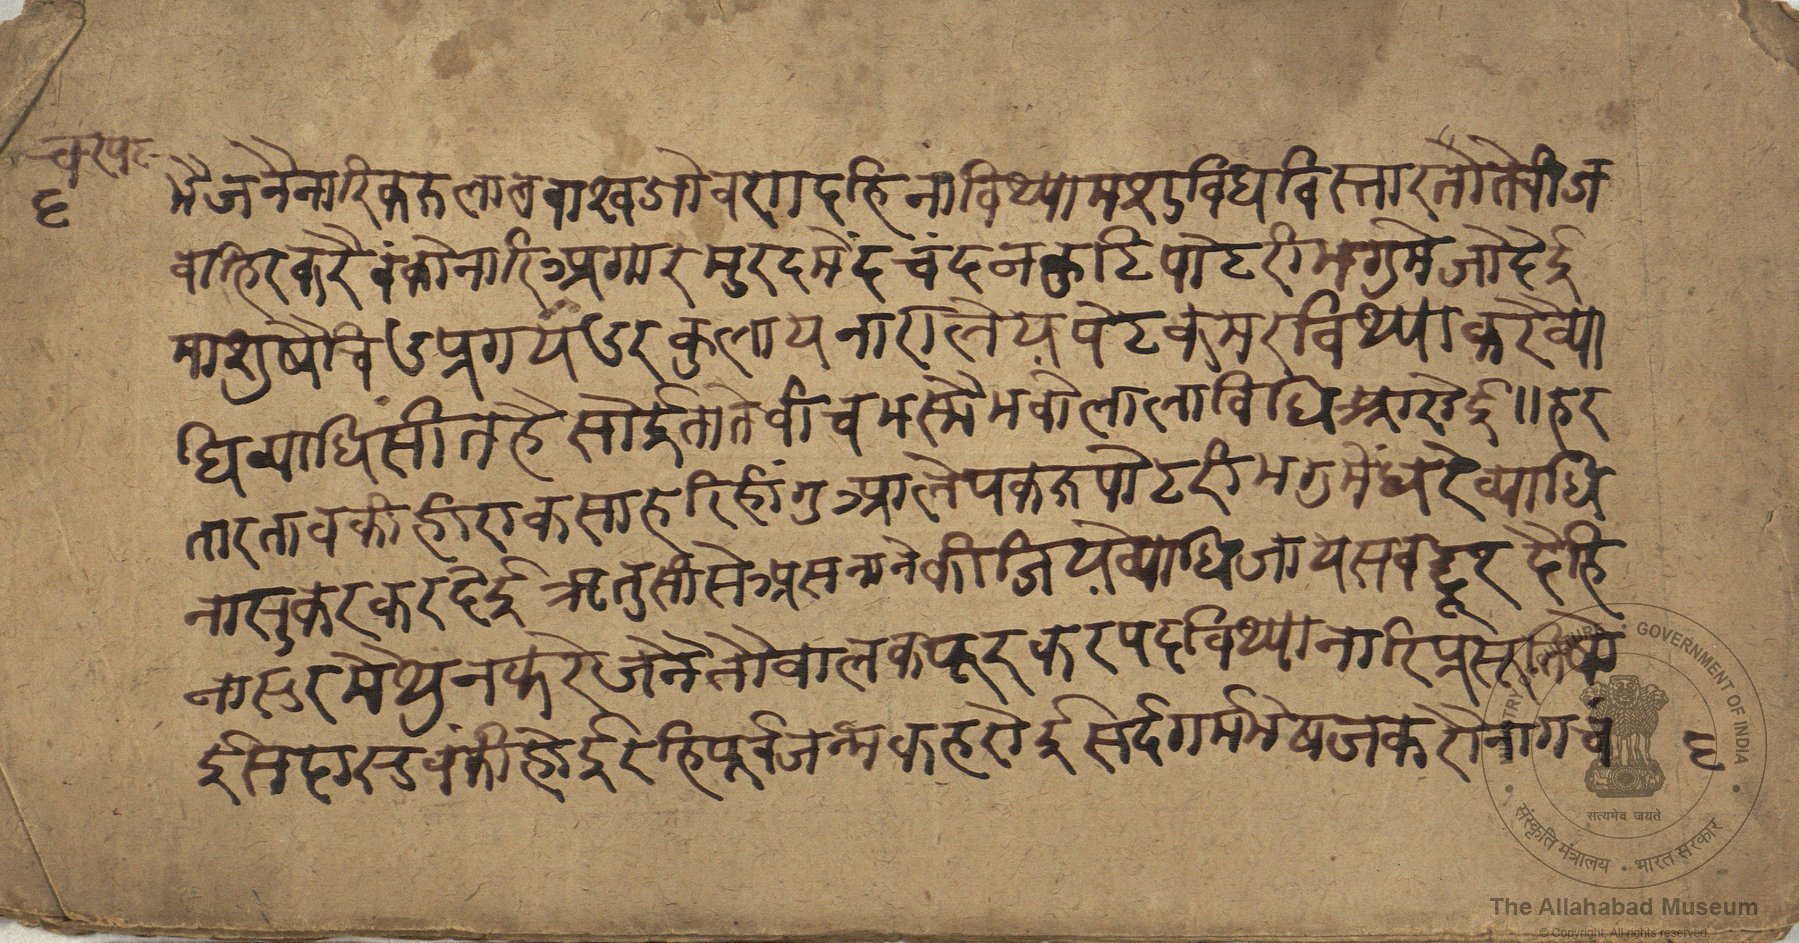 चरपट
६
मै जनै नारि करुलालवाश्वजो वरागदहिनाविथ्यामशुविधविस्तारतौतेवीज
वाहिरकरै वंकोनारि अगार मुरदमैंद चंदन कुटि पोटरी भगुमे जो देई
माशुषौवि उप्रगर्य उर कुलाय नारालेय पेट कुमर विथ्या करै व्या
धि व्याधि सीत है सोई तातेवीच भस्मै मवौलालाविधि रई॥ हर
तार तावकी हीरा कसा हरि हींगु आलेप करु पोटरी भगुमैं धरे व्याधि
नासु कर कर देई ऋतु सी से अस नाने कीजिये व्याधि जाय सब दूर देहि
ना सुर मैथुन करे जनै तौ वालक फूर करपद विथ्या नारि प्रसूति
ई स दास उवंकी होई देहि पूर्वजन्म कहरोई सर्दगर्म भेषज करौ नाग वं
६
MINISTRY OF CULTURE • GOVERNMENT OF INDIA
सत्यमेव जयते
संस्कृति मंत्रालय • भारत सरकार
The Allahabad Museum
© Copyright, All rights reserved.